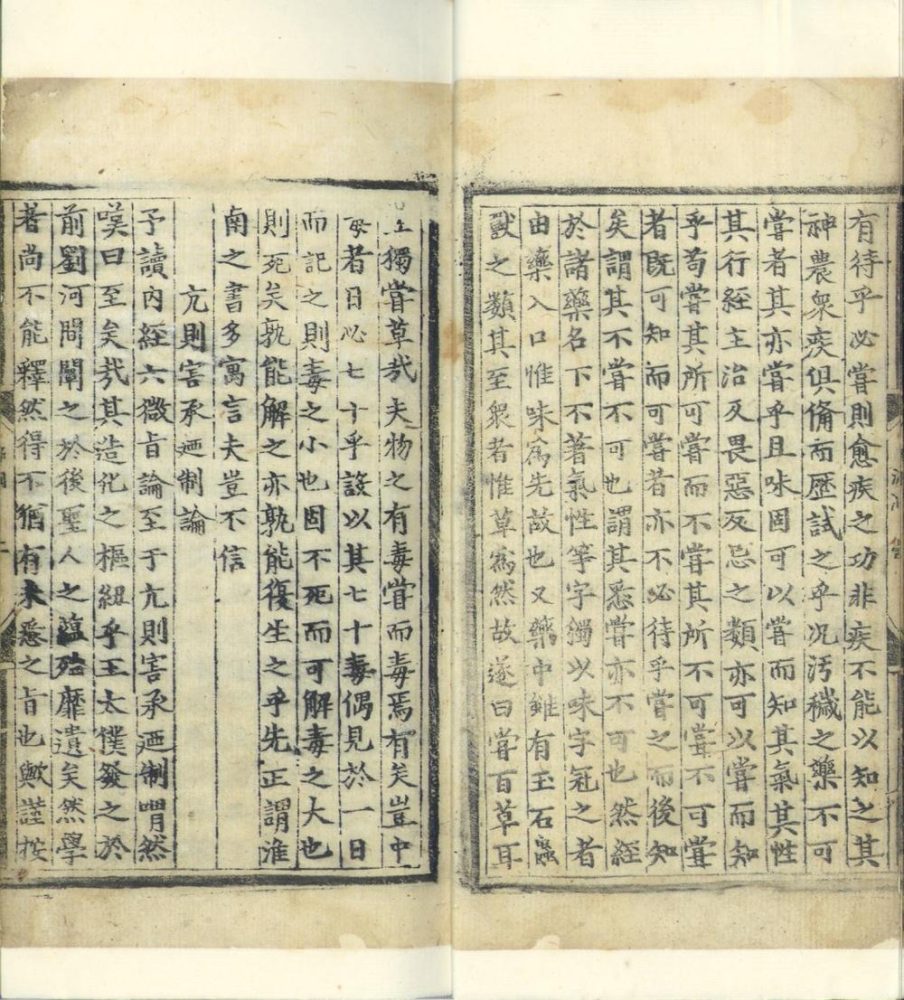 有待乎必嘗則愈疾之功非疾不能以知之其
神農衆疾俱備而歷試之乎况汚穢之藥不可
嘗者其亦嘗乎且味固可以嘗而知其氣其性
其行經主治及畏惡反忌之類亦可以嘗而知
乎苟嘗其所可嘗而不嘗其所不可嘗不可嘗
者既可知而可嘗者亦不必待乎嘗之而後知
矣謂其不嘗不可也謂其悉嘗亦不可也然經
於諸藥名下不著氣性等字獨以味字冠之者
由藥入口惟味爲先故也又藥中雖有玉石蟲
獸之類其至衆者惟草爲然故遂曰嘗百草耳
獨嘗草哉夫物之有毒嘗而毒焉有矣豈中
毒者日必七十乎設以其七十毒偶見於一日
而記之則毒之小也固不死而可解毒之大也
則死矣孰能解之亦孰能復生之乎先正謂淮
南之書多寓言夫豈不信
亢則害承廼制論
予讀内經六微旨論至于亢則害承廼制喟然
嘆曰至矣哉其造化之樞紐乎王太僕發之於
前劉河間闡之於後聖人之蘊殆靡遺矣然學
者尚不能釋然得不猶有未悉之旨也歟謹按